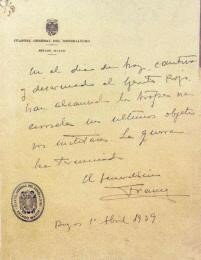 CUARTEL GENERAL DEL GENERALISIMO
ESTADO MAYOR
En el dia de hoy, cautivo
y desarmado el Ejército Rojo,
han alcanzado las tropas na-
cionales sus ultimos objeti-
vos militares. La guerra
ha terminado
El Generalísimo
Franco
Burgos 1º Abril 1939